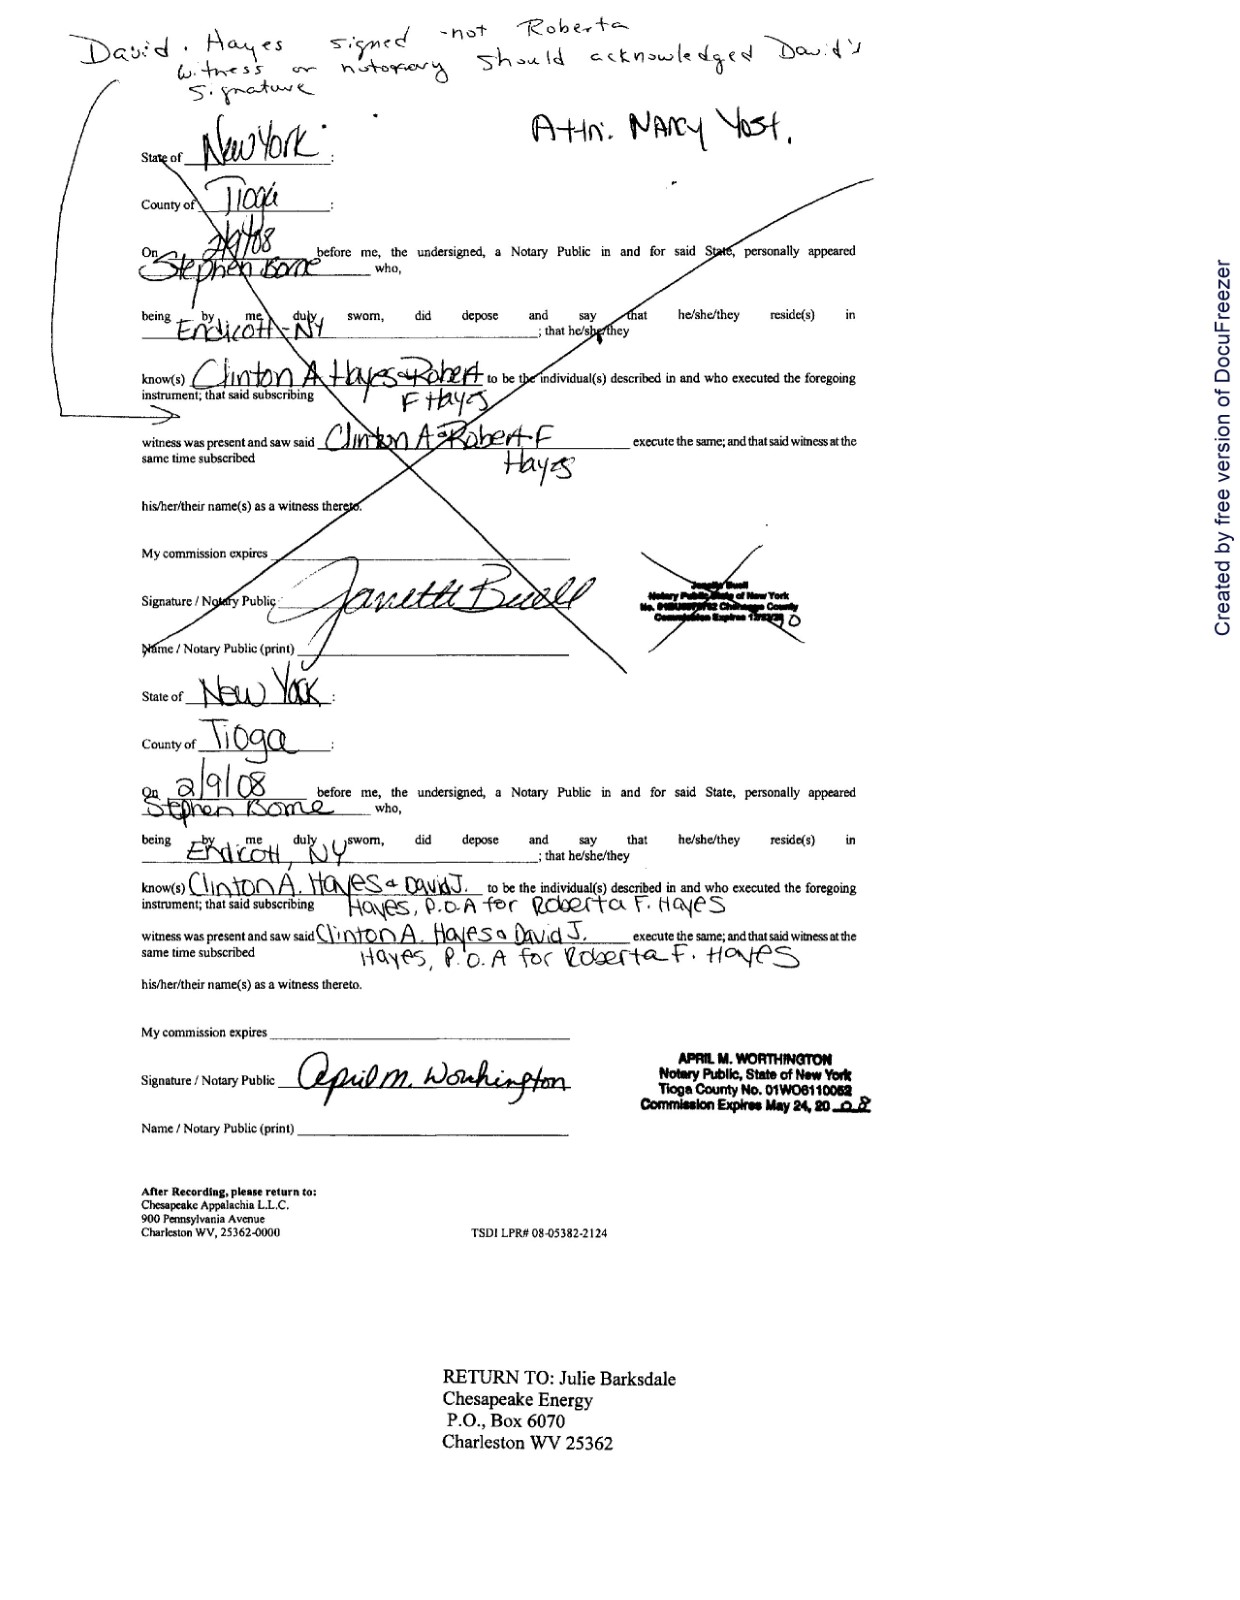 David. Hayes signed -not Roberta
witness or notorary should acknowledged David's
signature
Attn: NANCY Yost.
State of New York :
County of Tioga :
On 2/9/08 before me, the undersigned, a Notary Public in and for said State, personally appeared
Stephen Borne who,
being by me duly sworn, did depose and say that he/she/they reside(s) in
Endicott - NY ; that he/she/they
know(s) Clinton A Hayes & Robert to be the individual(s) described in and who executed the foregoing
instrument; that said subscribing F Hayes
witness was present and saw said Clinton A & Robert F execute the same; and that said witness at the
same time subscribed Hayes
his/her/their name(s) as a witness thereto.
My commission expires
Signature / Notary Public Janette Buell
Buell
Notary Public, State of New York
No. County
Commission Expires
Name / Notary Public (print)
State of New York :
County of Tioga :
On 2/9/08 before me, the undersigned, a Notary Public in and for said State, personally appeared
Stephen Borne who,
being by me duly sworn, did depose and say that he/she/they reside(s) in
Endicott, NY ; that he/she/they
know(s) Clinton A. Hayes & David J. to be the individual(s) described in and who executed the foregoing
instrument; that said subscribing Hayes, P.O.A for Roberta F. Hayes
witness was present and saw said Clinton A. Hayes & David J. execute the same; and that said witness at the
same time subscribed Hayes, P.O.A for Roberta F. Hayes
his/her/their name(s) as a witness thereto.
My commission expires
Signature / Notary Public April M. Worthington
APRIL M. WORTHINGTON
Notary Public, State of New York
Tioga County No. 01WO6110052
Commission Expires May 24, 20 08
Name / Notary Public (print)
After Recording, please return to:
Chesapeake Appalachia L.L.C.
900 Pennsylvania Avenue
Charleston WV, 25362-0000
TSDI LPR# 08-05382-2124
RETURN TO: Julie Barksdale
Chesapeake Energy
P.O., Box 6070
Charleston WV 25362
Created by free version of DocuFreezer